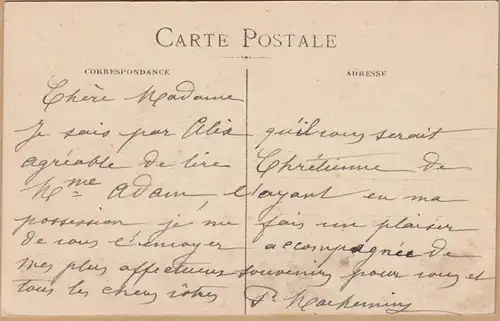 CARTE POSTALE
CORRESPONDANCE
ADRESSE
Chère Madame
Je sais par Alix qu'il vous serait
agréable de lire Chrétienne de
Mme Adam, l'ayant en ma
possession je me fais un plaisir
de vous l'envoyer accompagnée de
mes plus affectueux souvenirs pour vous et
tous les chers vôtres